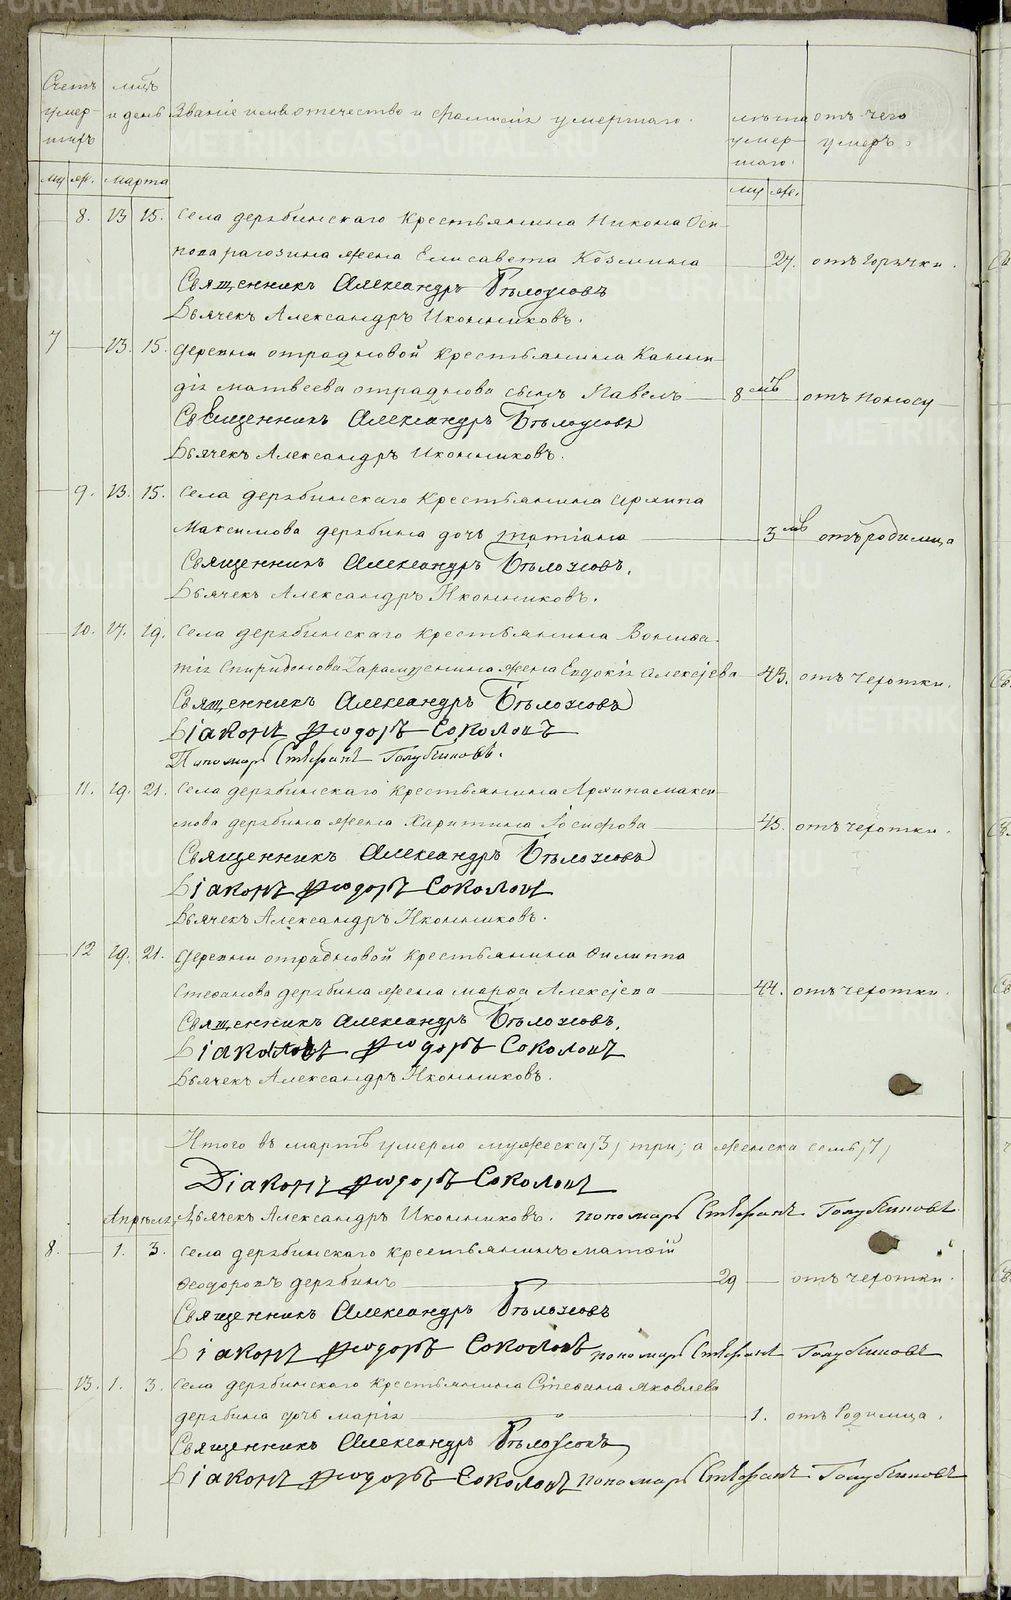 Счетъ умер- шихъ
мцъ и день
Званіе имя отечество и фамилія умершаго.
лѣта умер- шаго.
отъ чего умеръ.
му же. марта му же.
8. 13 15. Села дерябинскаго Крестьянина Никона Оси
пова рагозина жена Елисавета Козмина 27. отъ горячки.
Священникъ Александръ Бѣлоусовъ
Дьячекъ Александръ Иконниковъ.
7 13. 15. Деревни отрадновой Крестьянина Канни
дія матвеева отраднова сынъ Павелъ 8 мц отъ поносу
Священникъ Александръ Бѣлоусовъ
Дьячекъ Александръ Иконниковъ.
9. 13. 15. Села дерябинскаго Крестьянина Архипа
Максимова дерябина дочь татіана 3 мц отъ родимца
Священникъ Александръ Бѣлоусовъ.
Дьячекъ Александръ Иконниковъ.
10. 17. 19. Села дерябинскаго крестьянина Вонифа-
тія Спиридонова жена Евдокія Алексѣева 43. отъ чехотки.
Священникъ Александръ Бѣлоусовъ
Діаконъ Ѳеодоръ Соколовъ
Пономарь Стефанъ Голубчиковъ.
11. 19. 21. Села дерябинскаго Крестьянина Архипа макси
мова дерябина жена Харитина Іосифова 45. отъ чехотки.
Священникъ Александръ Бѣлоусовъ
Діаконъ Ѳеодоръ Соколовъ
Дьячекъ Александръ Иконниковъ.
12 19. 21. Деревни отрадновой крестьянина Филиппа
Стефанова дерябина жена марѳа Алексѣева 44. отъ чехотки.
Священникъ Александръ Бѣлоусовъ.
Діаконъ Ѳеодоръ Соколовъ
Дьячекъ Александръ Иконниковъ.
Итого въ мартѣ умерло мужеска /3/ три; а женска семь /7/
Діаконъ Ѳеодоръ Соколовъ
Апрѣля Дьячекъ Александръ Иконниковъ. пономарь Стефанъ Голубчиковъ.
8. 1. 3. Села дерябинскаго крестьянинъ матѳій
Ѳеодоровъ дерябинъ 29 отъ чехотки.
Священникъ Александръ Бѣлоусовъ
Діаконъ Ѳеодоръ Соколовъ пономарь Стефанъ Голубчиковъ
13. 1. 3. Села дерябинскаго Крестьянина Стефана яковлева
дерябина дочь марія 1. отъ Родимца.
Священникъ Александръ Бѣлоусовъ
Діаконъ Ѳеодоръ Соколовъ пономарь Стефанъ Голубчиковъ
METRIKI.GASU-URAL.RU